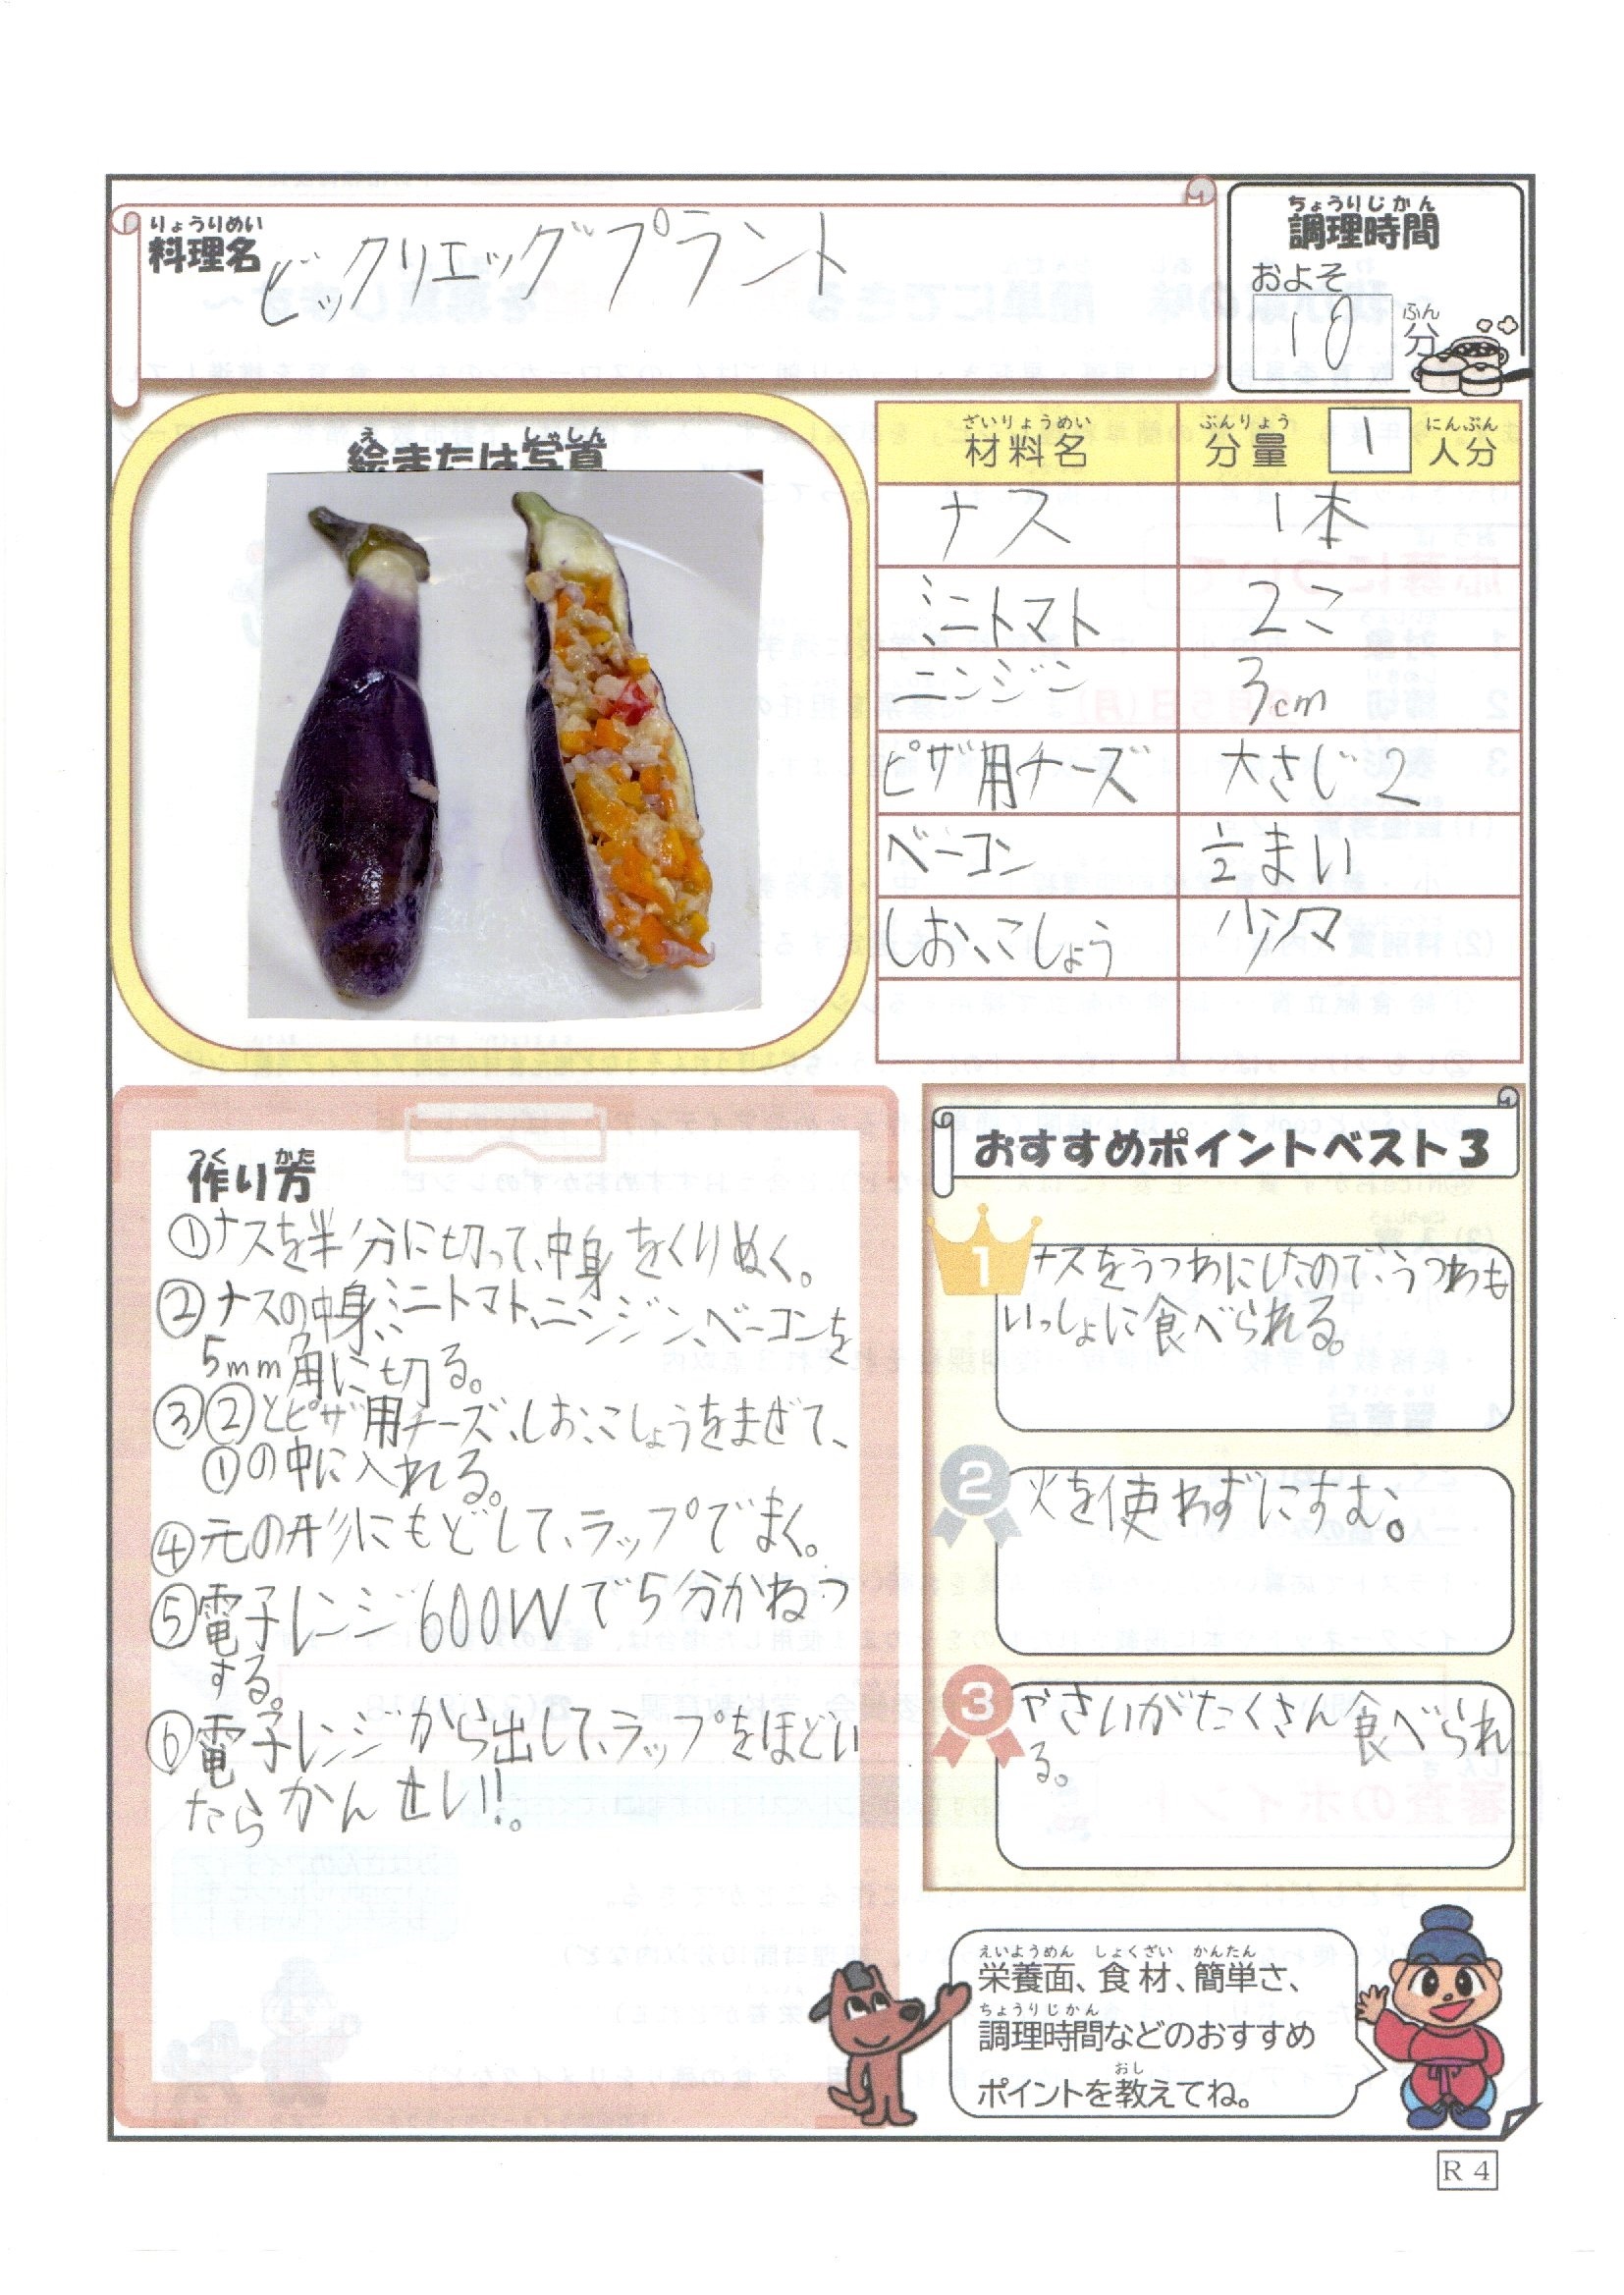 りょうりめい
料理名
ビックリエッグプラント
ちょうりじかん
調理時間
およそ
10 分
ふん
え しゃしん
絵または写真
ざいりょうめい
材料名
ぶんりょう にんぶん
分量 1 人分
ナス 1本
ミニトマト 2こ
ニンジン 3cm
ピザ用チーズ 大さじ2
ベーコン 1/2まい
しお、こしょう 少々
つく かた
作り方
①ナスを半分に切って、中身をくりぬく。
②ナスの中身、ミニトマト、ニンジン、ベーコンを
5mm角に切る。
③②とピザ用チーズ、しお、こしょうをまぜて、
①の中に入れる。
④元の形にもどして、ラップでまく。
⑤電子レンジ600Wで5分かねつ
する。
⑥電子レンジから出して、ラップをほどい
たらかんせい!!。
おすすめポイントベスト3
1
ナスをうつわにしたので、うつわも
いっしょに食べられる。
2
火を使わずにすむ。
3
やさいがたくさん食べられ
る。
えいようめん しょくざい かんたん
栄養面、食材、簡単さ、
ちょうりじかん
調理時間などのおすすめ
おし
ポイントを教えてね。
R4